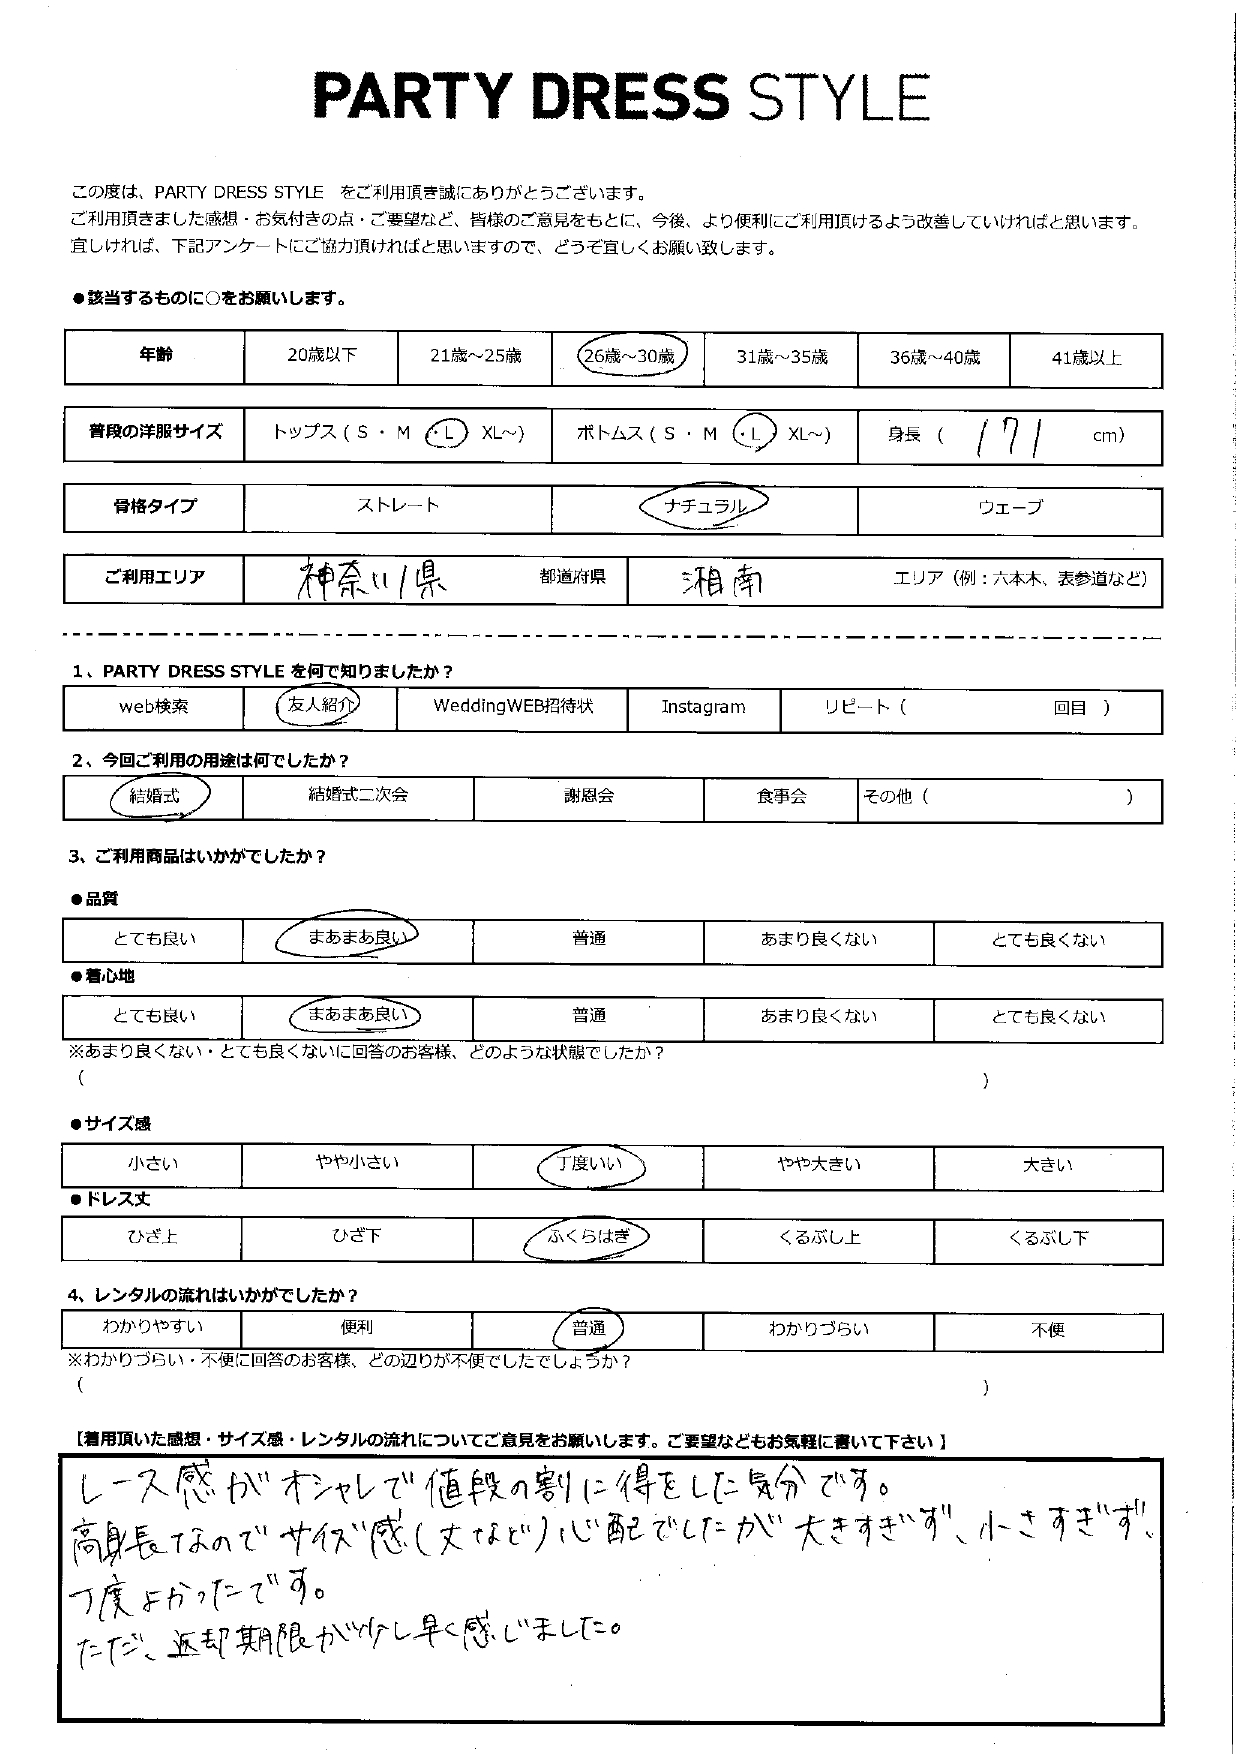 PARTY DRESS STYLE
この度は、PARTY DRESS STYLE をご利用頂き誠にありがとうございます。
ご利用頂きました感想・お気付きの点・ご要望など、皆様のご意見をもとに、今後、より便利にご利用頂けるよう改善していければと思います。
宜しければ、下記アンケートにご協力頂ければと思いますので、どうぞ宜しくお願い致します。
●該当するものに○をお願いします。
年齢 20歳以下 21歳～25歳 26歳～30歳 31歳～35歳 36歳～40歳 41歳以上
普段の洋服サイズ トップス ( S ・ M ・L XL～) ボトムス ( S ・ M ・L XL～) 身長 ( 171 cm)
骨格タイプ ストレート ナチュラル ウェーブ
ご利用エリア 神奈川県 都道府県 湘南 エリア（例：六本木、表参道など）
1、PARTY DRESS STYLE を何で知りましたか？
web検索 友人紹介 WeddingWEB招待状 Instagram リピート（ 回目 ）
2、今回ご利用の用途は何でしたか？
結婚式 結婚式二次会 謝恩会 食事会 その他（ ）
3、ご利用商品はいかがでしたか？
●品質
とても良い まあまあ良い 普通 あまり良くない とても良くない
●着心地
とても良い まあまあ良い 普通 あまり良くない とても良くない
※あまり良くない・とても良くないに回答のお客様、どのような状態でしたか？
（ ）
●サイズ感
小さい やや小さい 丁度いい やや大きい 大きい
●ドレス丈
ひざ上 ひざ下 ふくらはぎ くるぶし上 くるぶし下
4、レンタルの流れはいかがでしたか？
わかりやすい 便利 普通 わかりづらい 不便
※わかりづらい・不便に回答のお客様、どの辺りが不便でしたでしょうか？
（ ）
【着用頂いた感想・サイズ感・レンタルの流れについてご意見をお願いします。ご要望などもお気軽に書いて下さい】
レース感がオシャレで値段の割に得をした気分です。
高身長なのでサイズ感(丈など)心配でしたが大きすぎず、小さすぎず、
丁度よかったです。
ただ、返却期限が少し早く感じました。